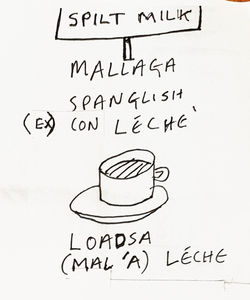 SPILT MILK
MALLAGA
SPANGLISH
(EX) CON LÉCHÉ
LOADSA
(MAL 'A) LÉCHE